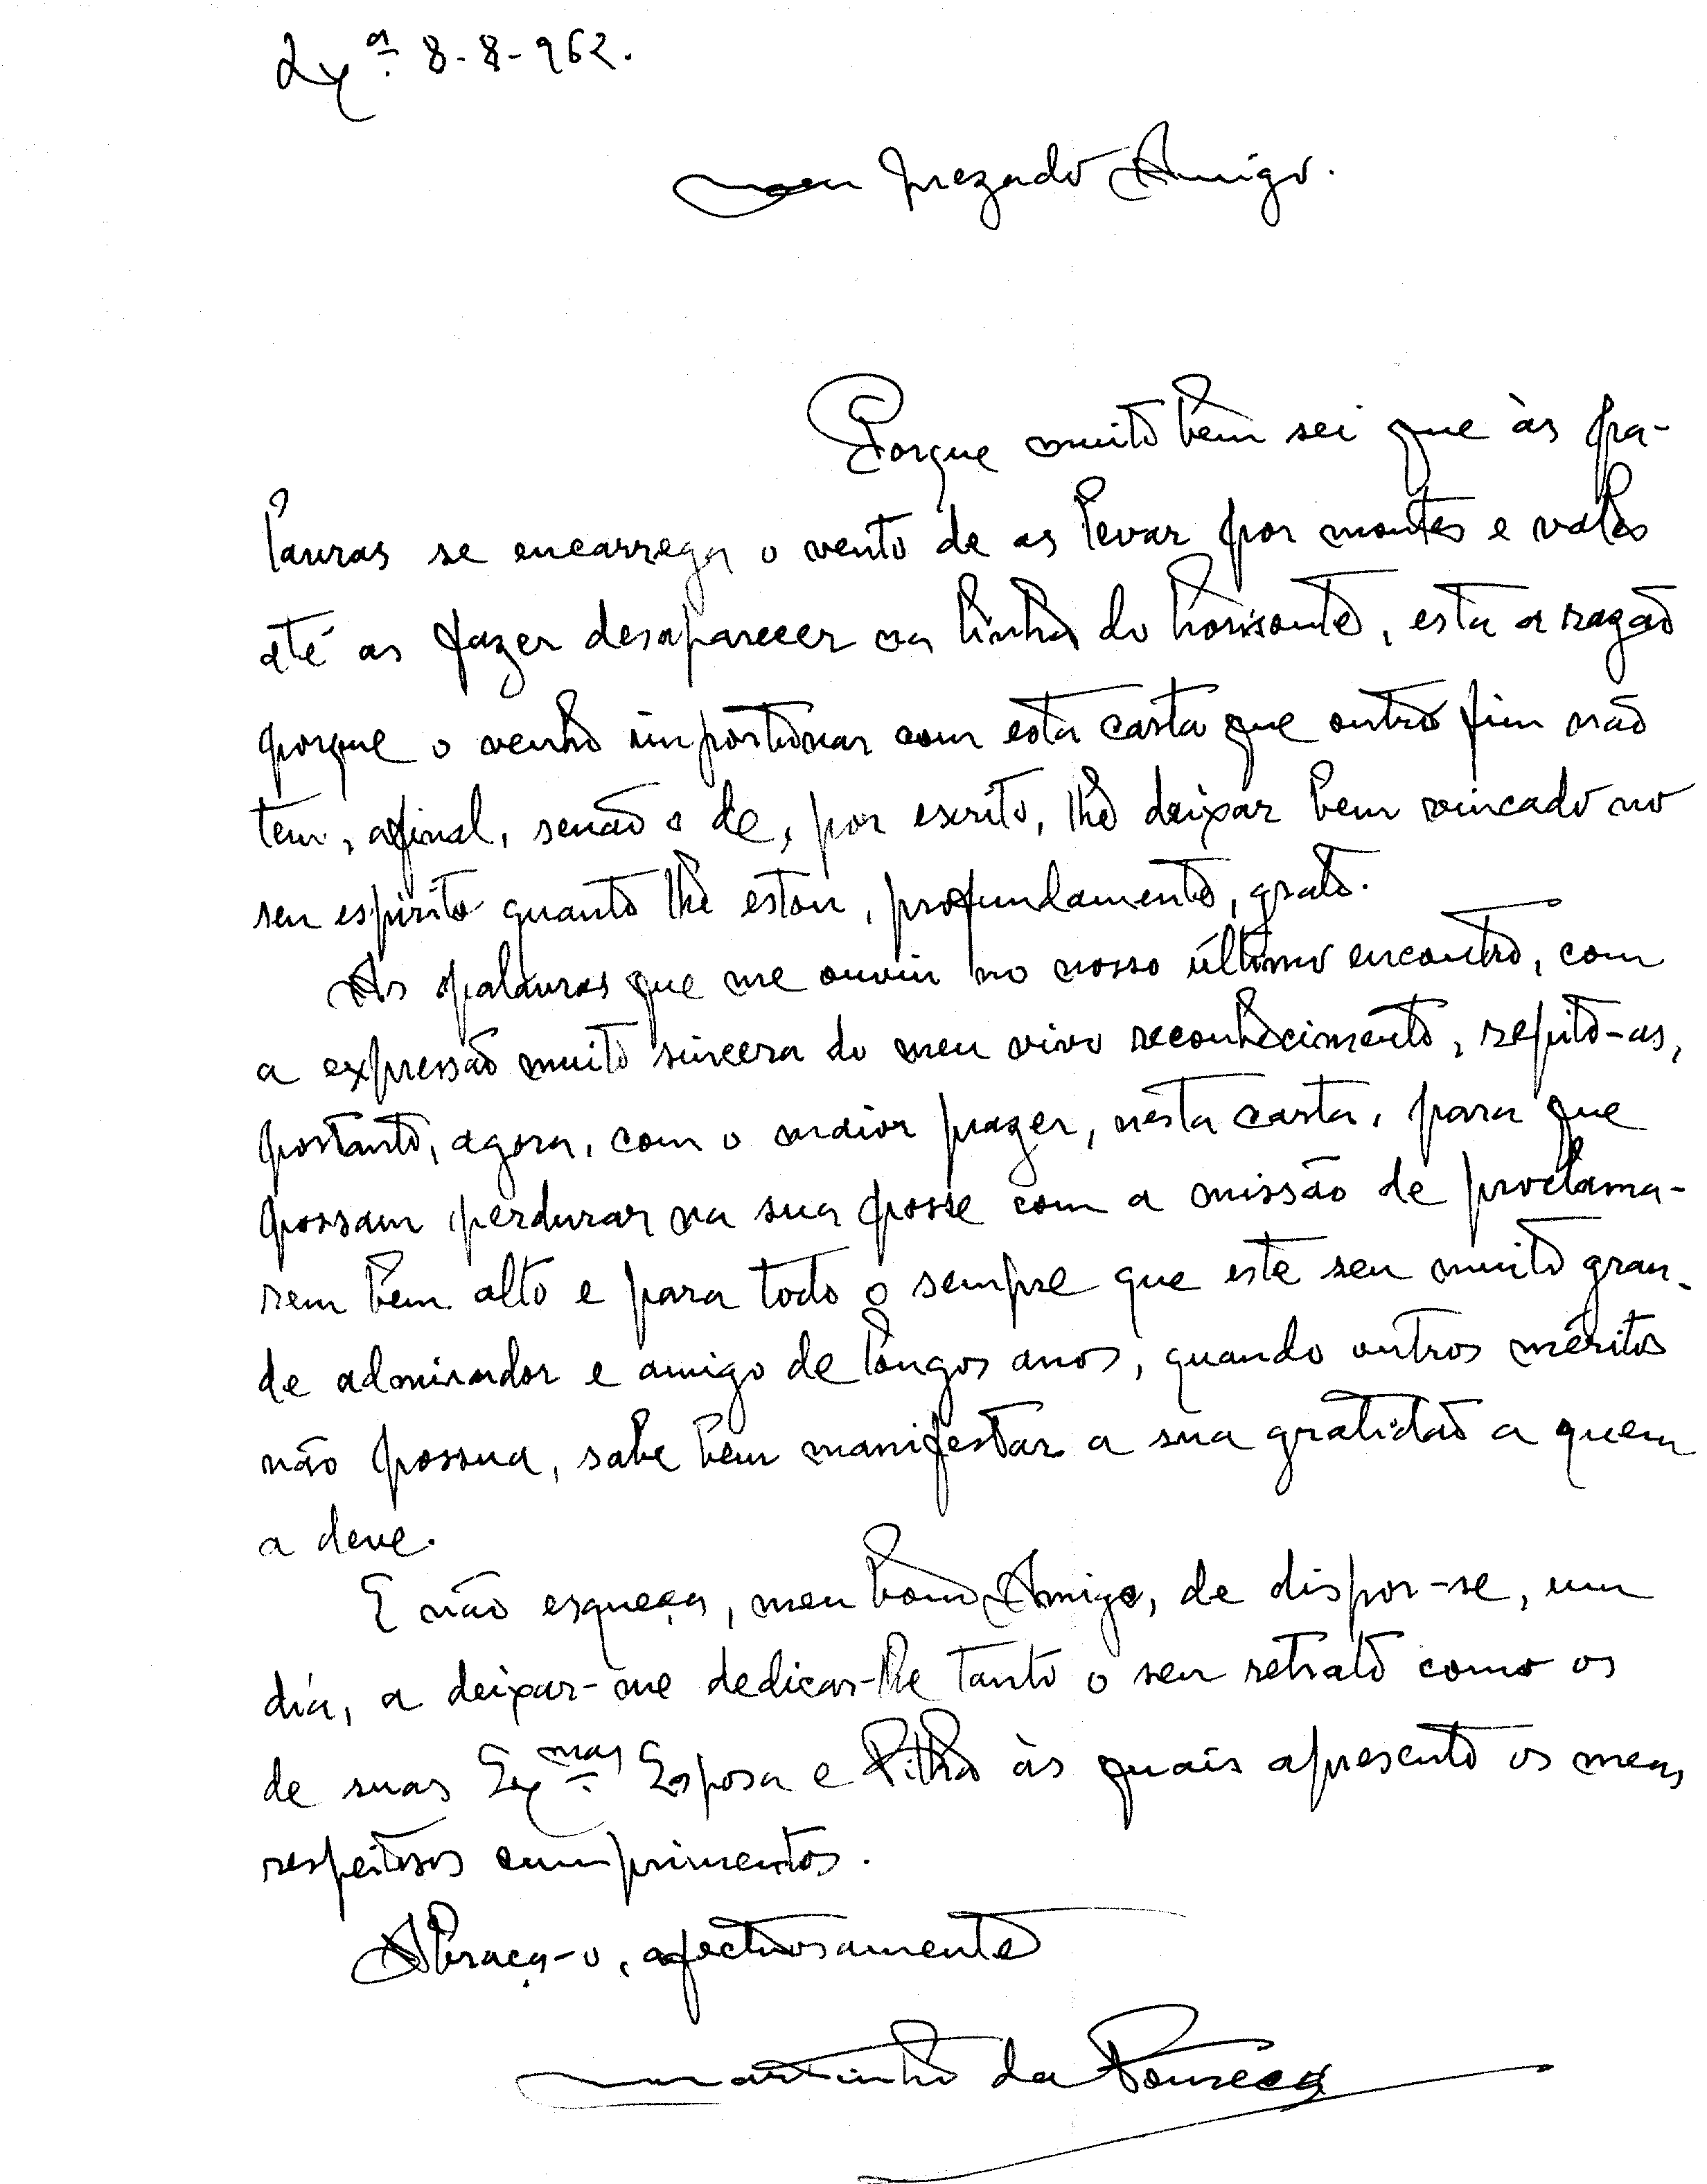 Lxª 8-8-962.
Meu prezado Amigo.
Porque muito bem sei que às pa-
lavras se encarrega o vento de as levar por montes e vales
até as fazer desaparecer na linha do horisonte, esta a razão
porque o venho importunar com esta carta que outro fim não
tem, afinal, senão o de, por escrito, lhe deixar bem vincado no
seu espirito quanto lhe estou, profundamente, grato.
As palavras que me ouviu no nosso último encontro, com
a expressão muito sincera do meu vivo reconhecimento, repito-as,
portanto, agora, com o maior prazer, nesta carta, para que
possam perdurar na sua posse com a missão de proclama-
rem bem alto e para todo o sempre que este seu muito gran-
de admirador e amigo de longos anos, quando outros méritos
não possua, sabe bem manifestar a sua gratidão a quem
a deve.
E não esqueça, meu bom Amigo, de dispor-se, um
dia, a deixar-me dedicar-lhe tanto o seu retrato como os
de suas Exmas Esposa e Filha às quais apresento os meus
respeitosos cumprimentos.
Abraça-o, afectuosamente
Martinho da Fonseca